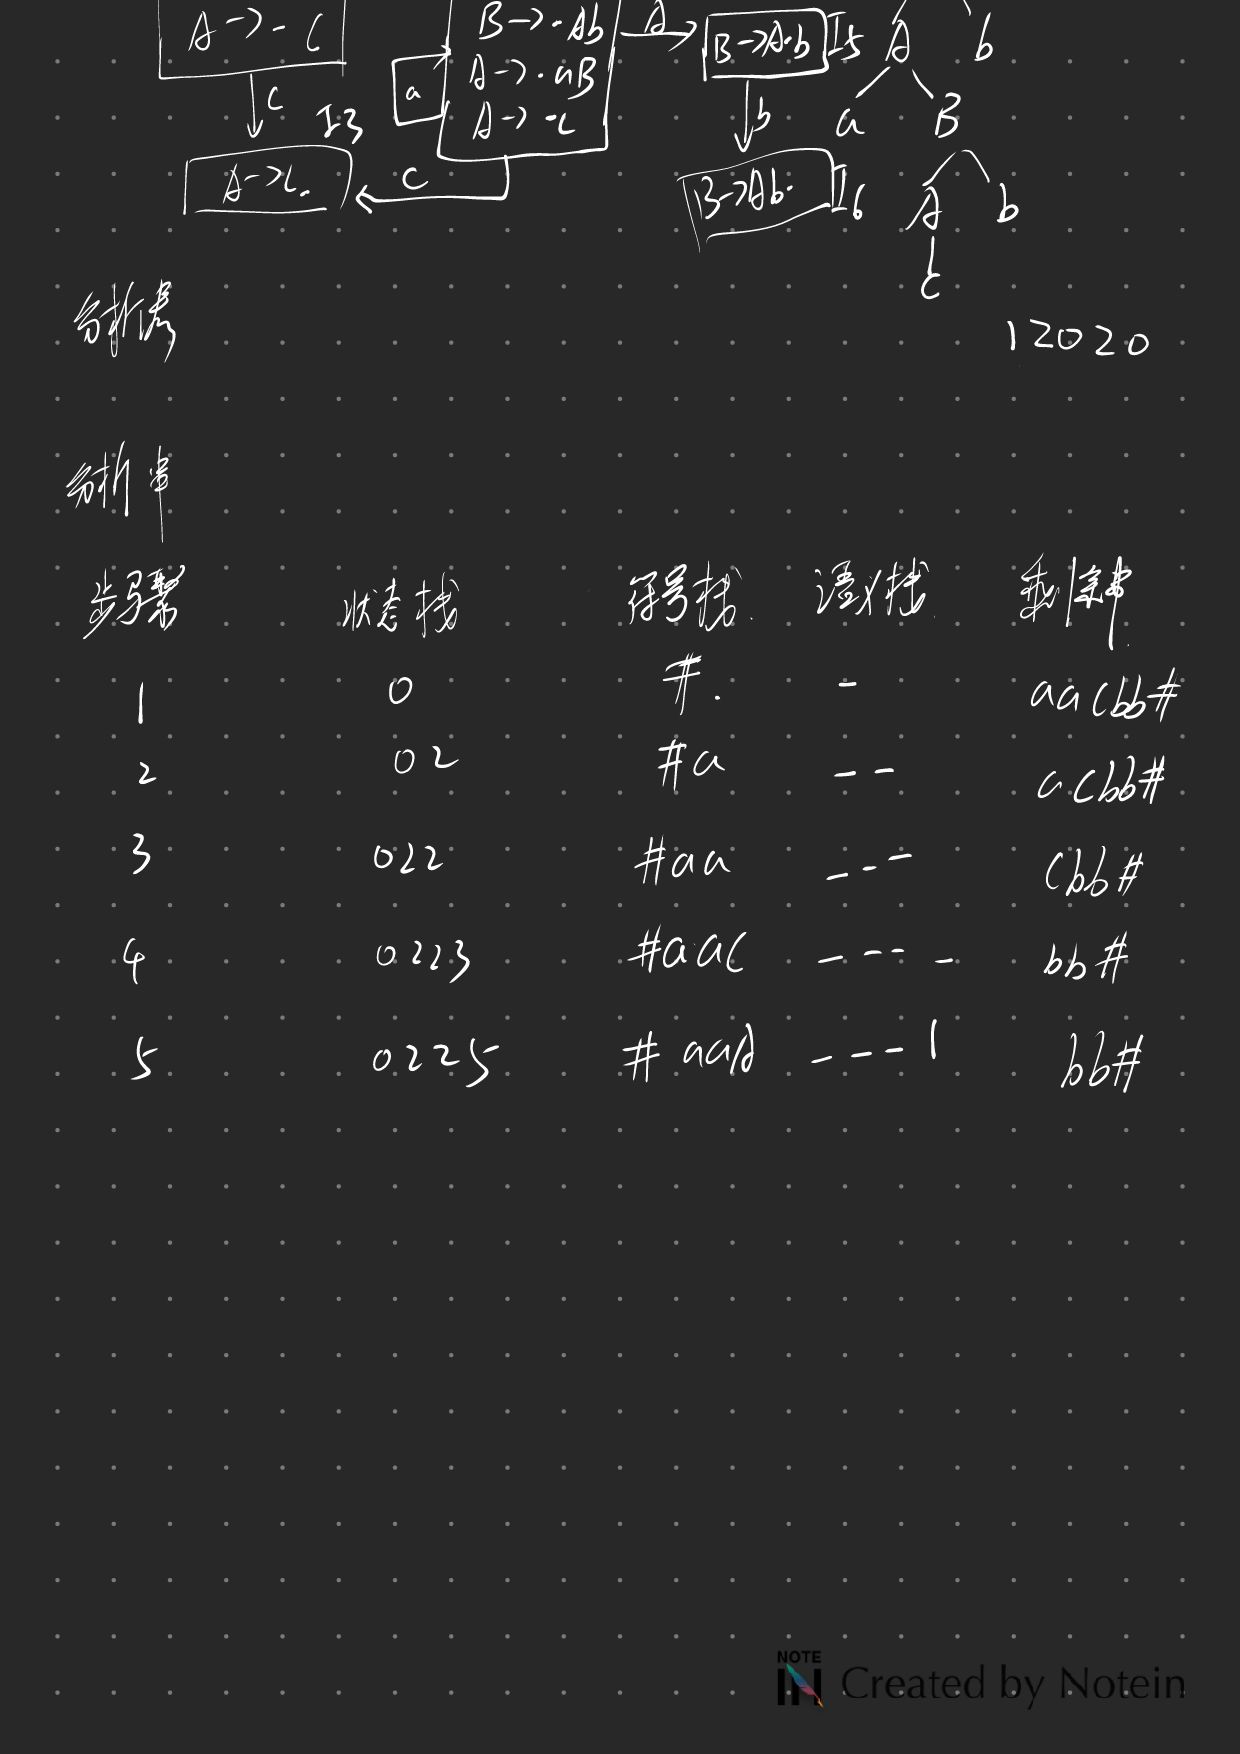 A->·c
B->·Ab
A->·aB
A->·c
a
A
B->A·b I5
A b
c
I3
b
a B
A->c.
c
B->Ab· I6
A b
c
分析表
12020
分析串
步骤 状态栈 符号栈 语义栈 剩余串
1 0 # - aacbb#
2 02 #a -- acbb#
3 022 #aa --- cbb#
4 0223 #aac ---- bb#
5 0225 #aaA ---1 bb#
NOTE IN Created by Notein